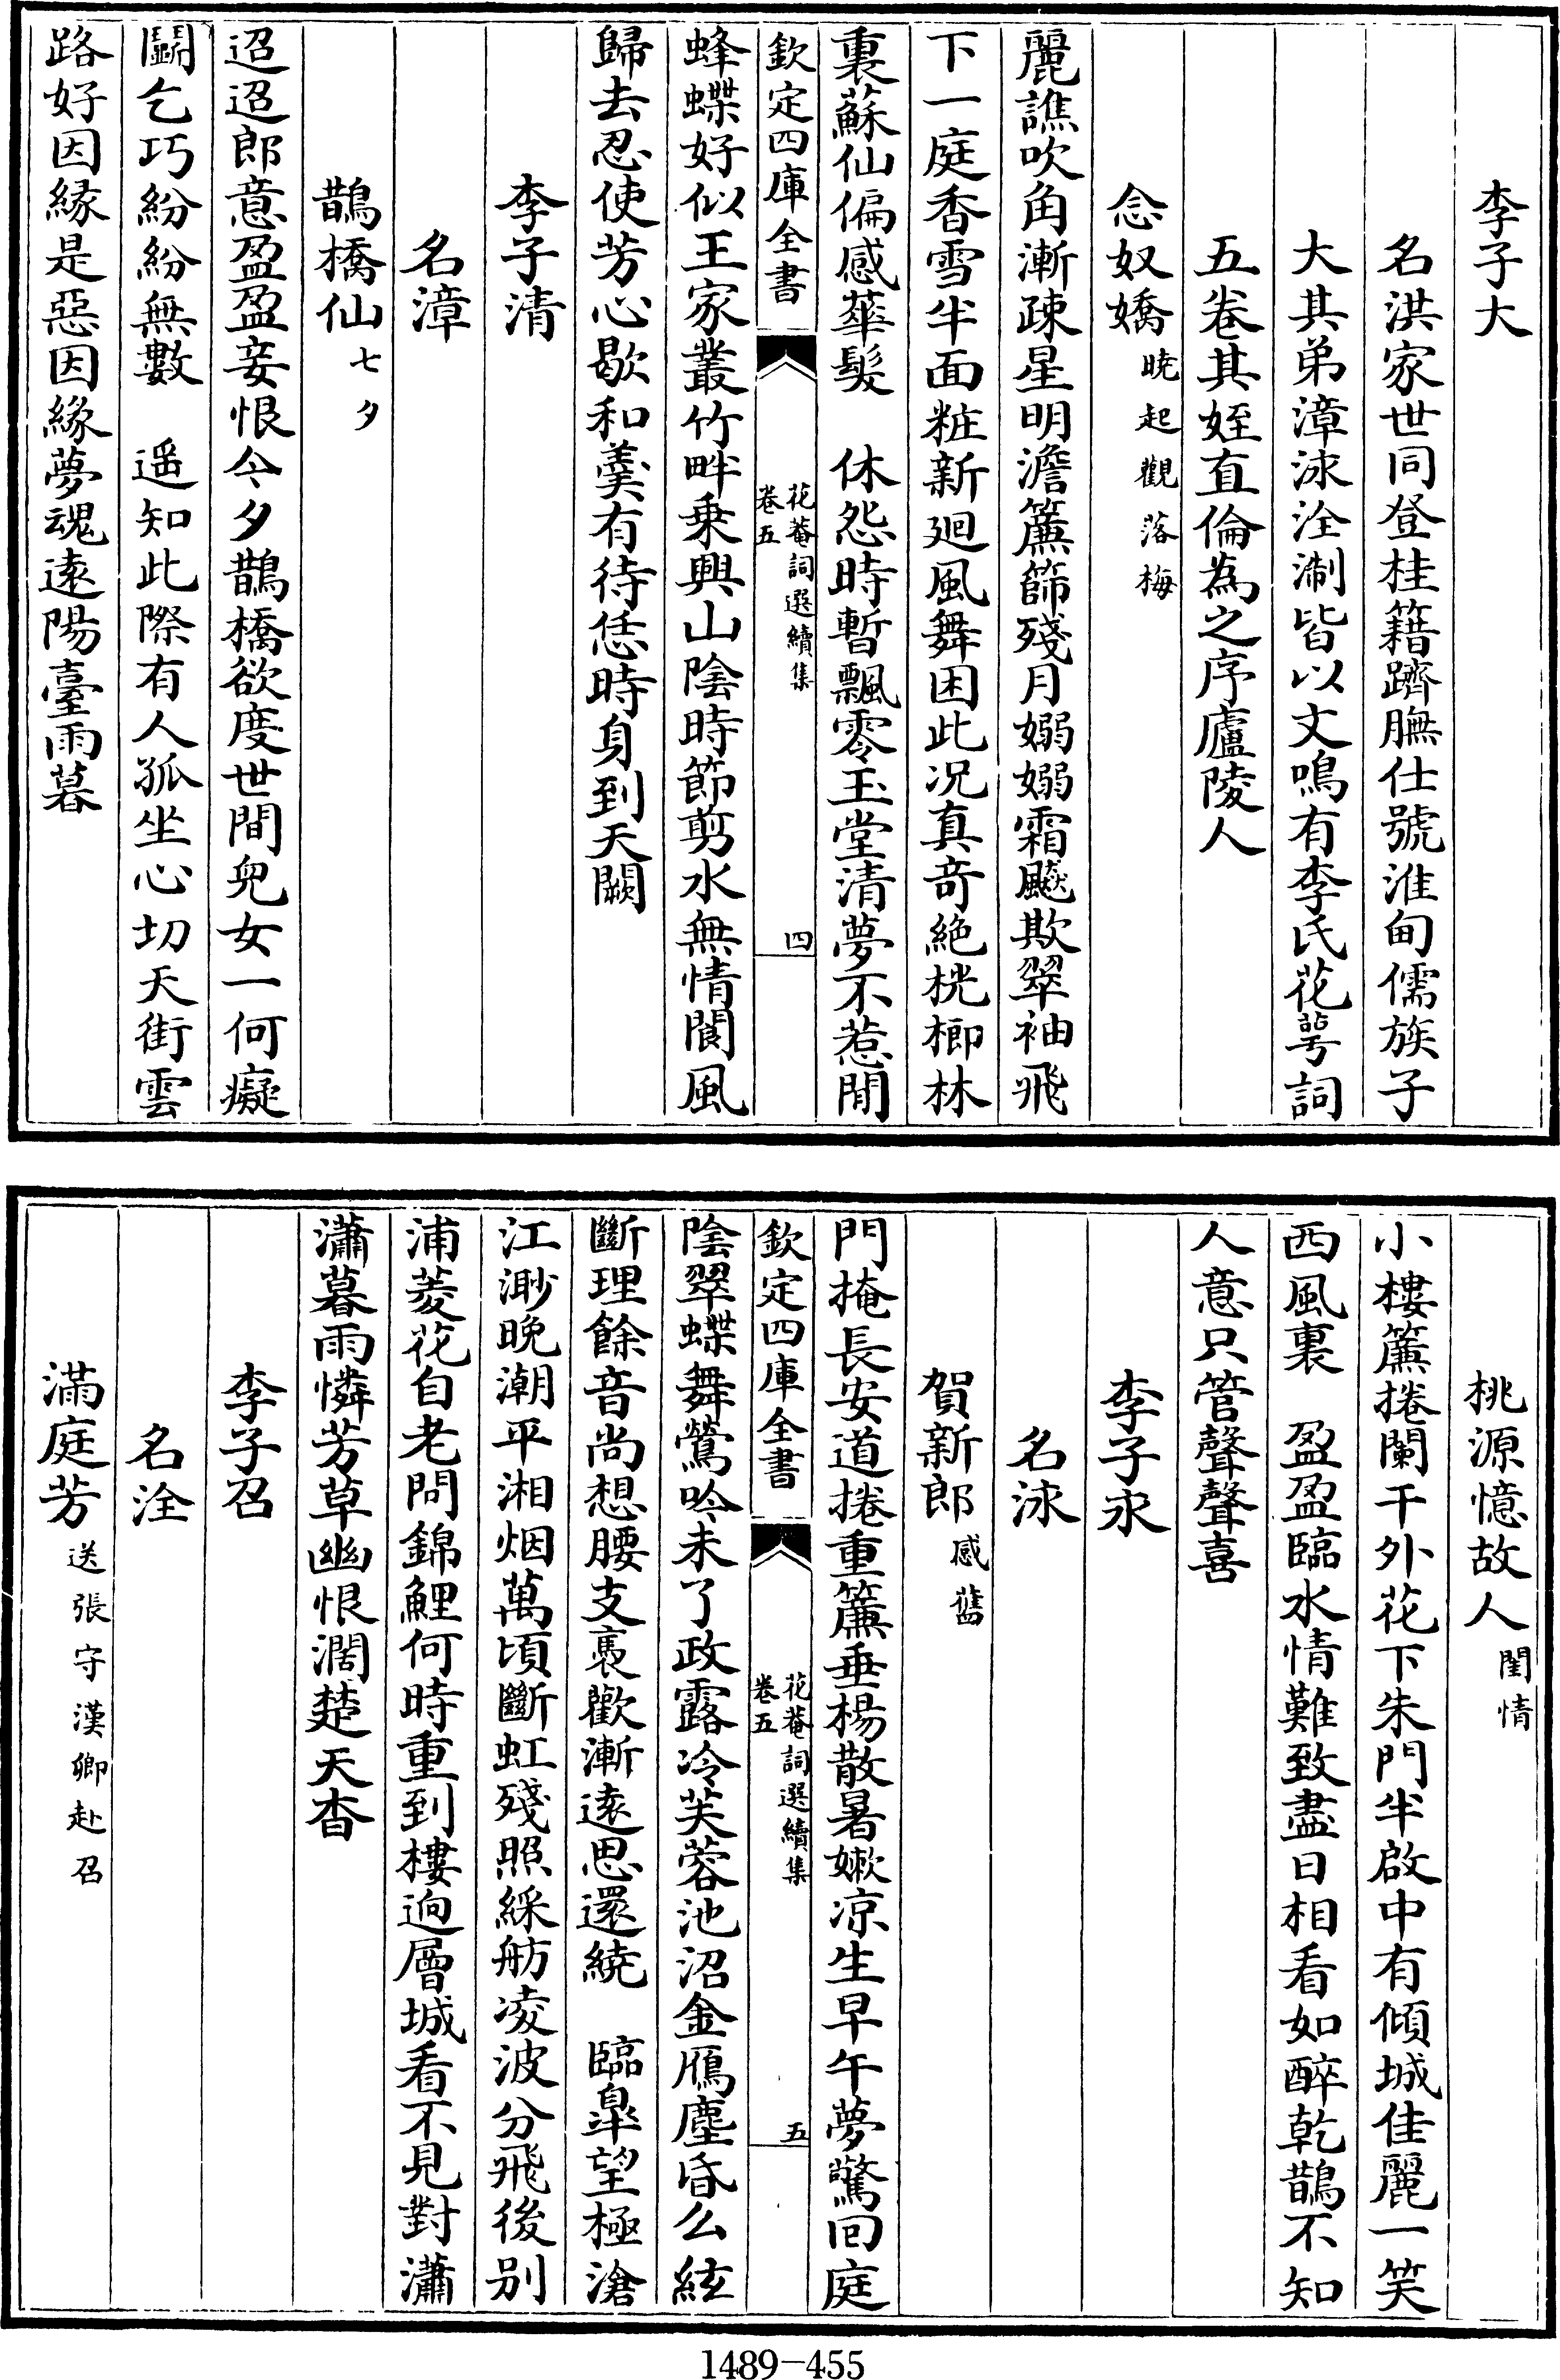 李子大
名洪家世同登桂籍躋膴仕號淮甸儒族子
大其弟漳泳洤淛皆以文鳴有李氏花萼詞
五卷其姪直倫為之序廬陵人
念奴嬌 曉起觀落梅
麗譙吹角漸疎星明澹簾篩殘月嫋嫋霜飈欺翠袖飛
下一庭香雪半面粧新廻風舞困此况真竒絶桄榔林
裏蘇仙偏感華髮　休怨時暫飄零玉堂清夢不惹閒
欽定四庫全書 花菴詞選續集 卷五 四
蜂蝶好似王家叢竹畔乗興山陰時節剪水無情閬風
歸去忍使芳心歇和羹有待恁時身到天闕
李子清
名漳
鵲橋仙 七夕
迢迢郎意盈盈妾恨今夕鵲橋欲度世間兒女一何癡
鬬乞巧紛紛無數　遥知此際有人孤坐心切天街雲
路好因緣是惡因緣夢魂逺陽臺雨暮
桃源憶故人 閨情
小樓簾捲闌干外花下朱門半啟中有傾城佳麗一笑
西風裏　盈盈臨水情難致盡日相看如醉乾鵲不知
人意只管聲聲喜
李子永
名泳
賀新郎 感舊
門掩長安道捲重簾垂楊散暑嫰凉生早午夢驚回庭
欽定四庫全書 花菴詞選續集 卷五 五
陰翠蝶舞鶯吟未了政露冷芙蓉池沼金鴈塵昏么絃
斷理餘音尚想腰支褭歡漸逺思還繞　臨臯望極滄
江渺晚潮平湘烟萬頃斷虹殘照綵舫凌波分飛後别
浦菱花自老問錦鯉何時重到樓逈層城看不見對瀟
瀟暮雨憐芳草幽恨濶楚天杳
李子召
名洤
滿庭芳 送張守漢卿赴召
1489－455